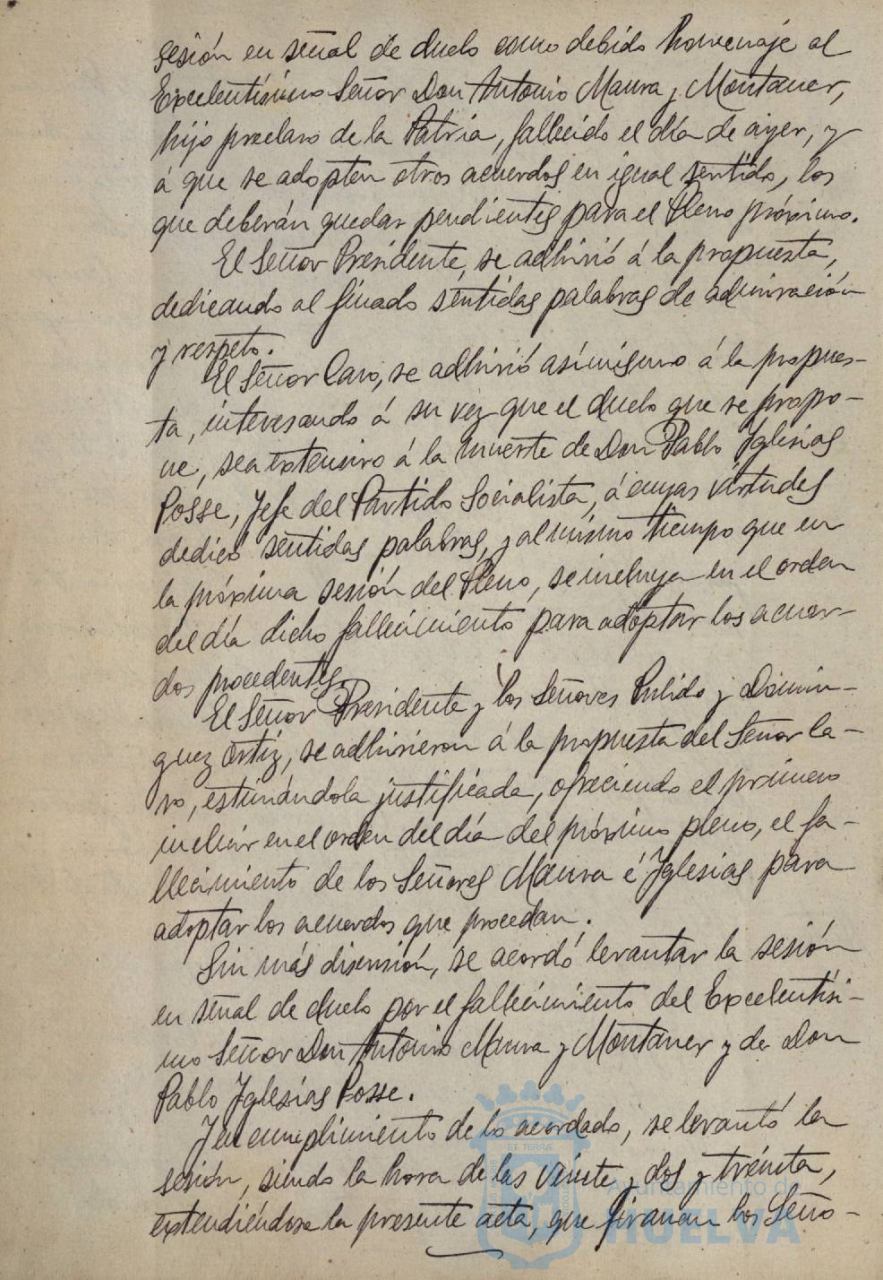 sesión en señal de duelo como debido homenaje al
Excelentísimo Señor Don Antonio Maura y Montaner,
hijo preclaro de la Patria, fallecido el día de ayer, y
á que se adopten otros acuerdos en igual sentido, los
que deberán quedar pendientes para el Pleno próximo.
El Señor Presidente, se adhirió á la propuesta,
dedicando al finado sentidas palabras de admiración
y respeto.
El Señor Caro, se adhirió asímismo á la propues-
ta, interesando á su vez que el duelo que se propo-
ne, sea extensivo á la muerte de Don Pablo Iglesias
Posse, Jefe del Partido Socialista, á cuyas virtudes
dedicó sentidas palabras, y al mismo tiempo que en
la próxima sesión del Pleno, se incluya en el orden
del día dicho fallecimiento para adoptar los acuer-
dos procedentes.
El Señor Presidente y los Señores Pulido y Domin-
guez Ortiz, se adhirieron á la propuesta del Señor Ca-
ro, estimándola justificada, ofreciendo el primero
incluir en el orden del día del próximo pleno, el fa-
llecimiento de los Señores Maura é Iglesias para
adoptar los acuerdos que procedan.
Sin más discusión, se acordó levantar la sesión
en señal de duelo por el fallecimiento del Excelentísi-
mo Señor Don Antonio Maura y Montaner y de Don
Pablo Iglesias Posse.
Y en cumplimiento de lo acordado, se levantó la
sesión, siendo la hora de las veinte y dos y treinta,
extendiéndose la presente acta, que firman los Seño-
Ayuntamiento de
HUELVA